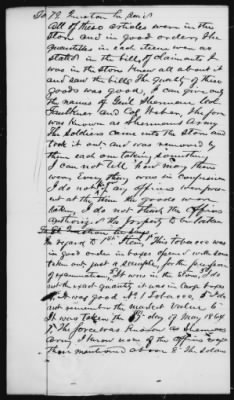 To 18 Question he says
all of these articles were in the
store and in good order, the
quantities in each item were as
stated in the bill of claimant. It
was in the store knew all about it
and saw the bills, the quality of these
goods was good, I can give only
the names of Genl Sherman, Col.
Faulkner and Col the force
was known as Shermans Army.
The Soldiers came into the Store and
took it out and was removed by
them each one taking something
I can not tell how many there
were, Every thing was in confusion
I do not say officers were pres-
ent at the time the goods were
taken, I do not think the officers
authorized the property to be taken
In regard to 1st Item, 1st This Tobacco was
in good order in boxes opened with some
taken out just a sample, for the purpose
of examination, 2d It was in the Store, 3d I do
not the exact quantity it was in large boxes
4 It was good No 1 Tobacco, 5 I do
not remember the market value 6
It was taken the day of May 1864
7 The force was known as Shermans
Army I know none of the officers except
those mentioned above 8 The Soldiers